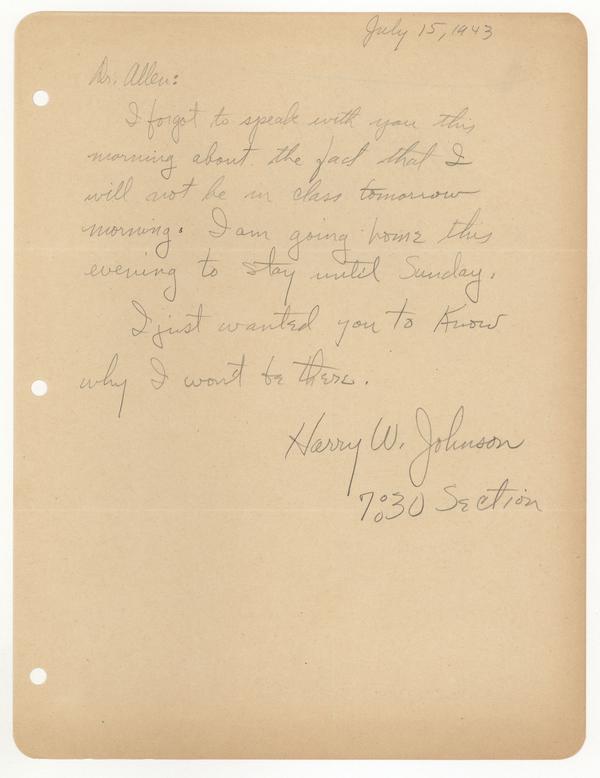 July 15, 1943
Dr. Allen:
I forgot to speak with you this
morning about the fact that I
will not be in class tomorrow
morning. I am going home this
evening to stay until Sunday.
I just wanted you to know
why I won't be there.
Harry W. Johnson
7:30 Section